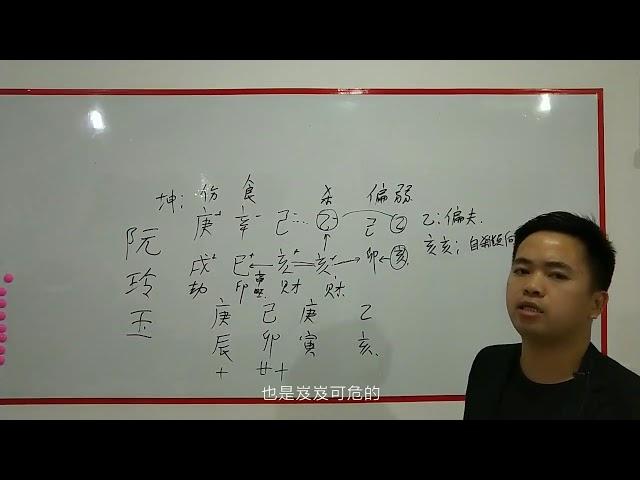 坤: 伤 食 杀 偏 弱
庚 辛 己 乙 己 乙 乙: 偏夫.
戌 巳 亥 亥 卯 亥 亥亥; 自刑
劫 印 财 财
阮玲玉
庚 己 庚 乙
辰 卯 寅 亥
十 廿十
也是岌岌可危的